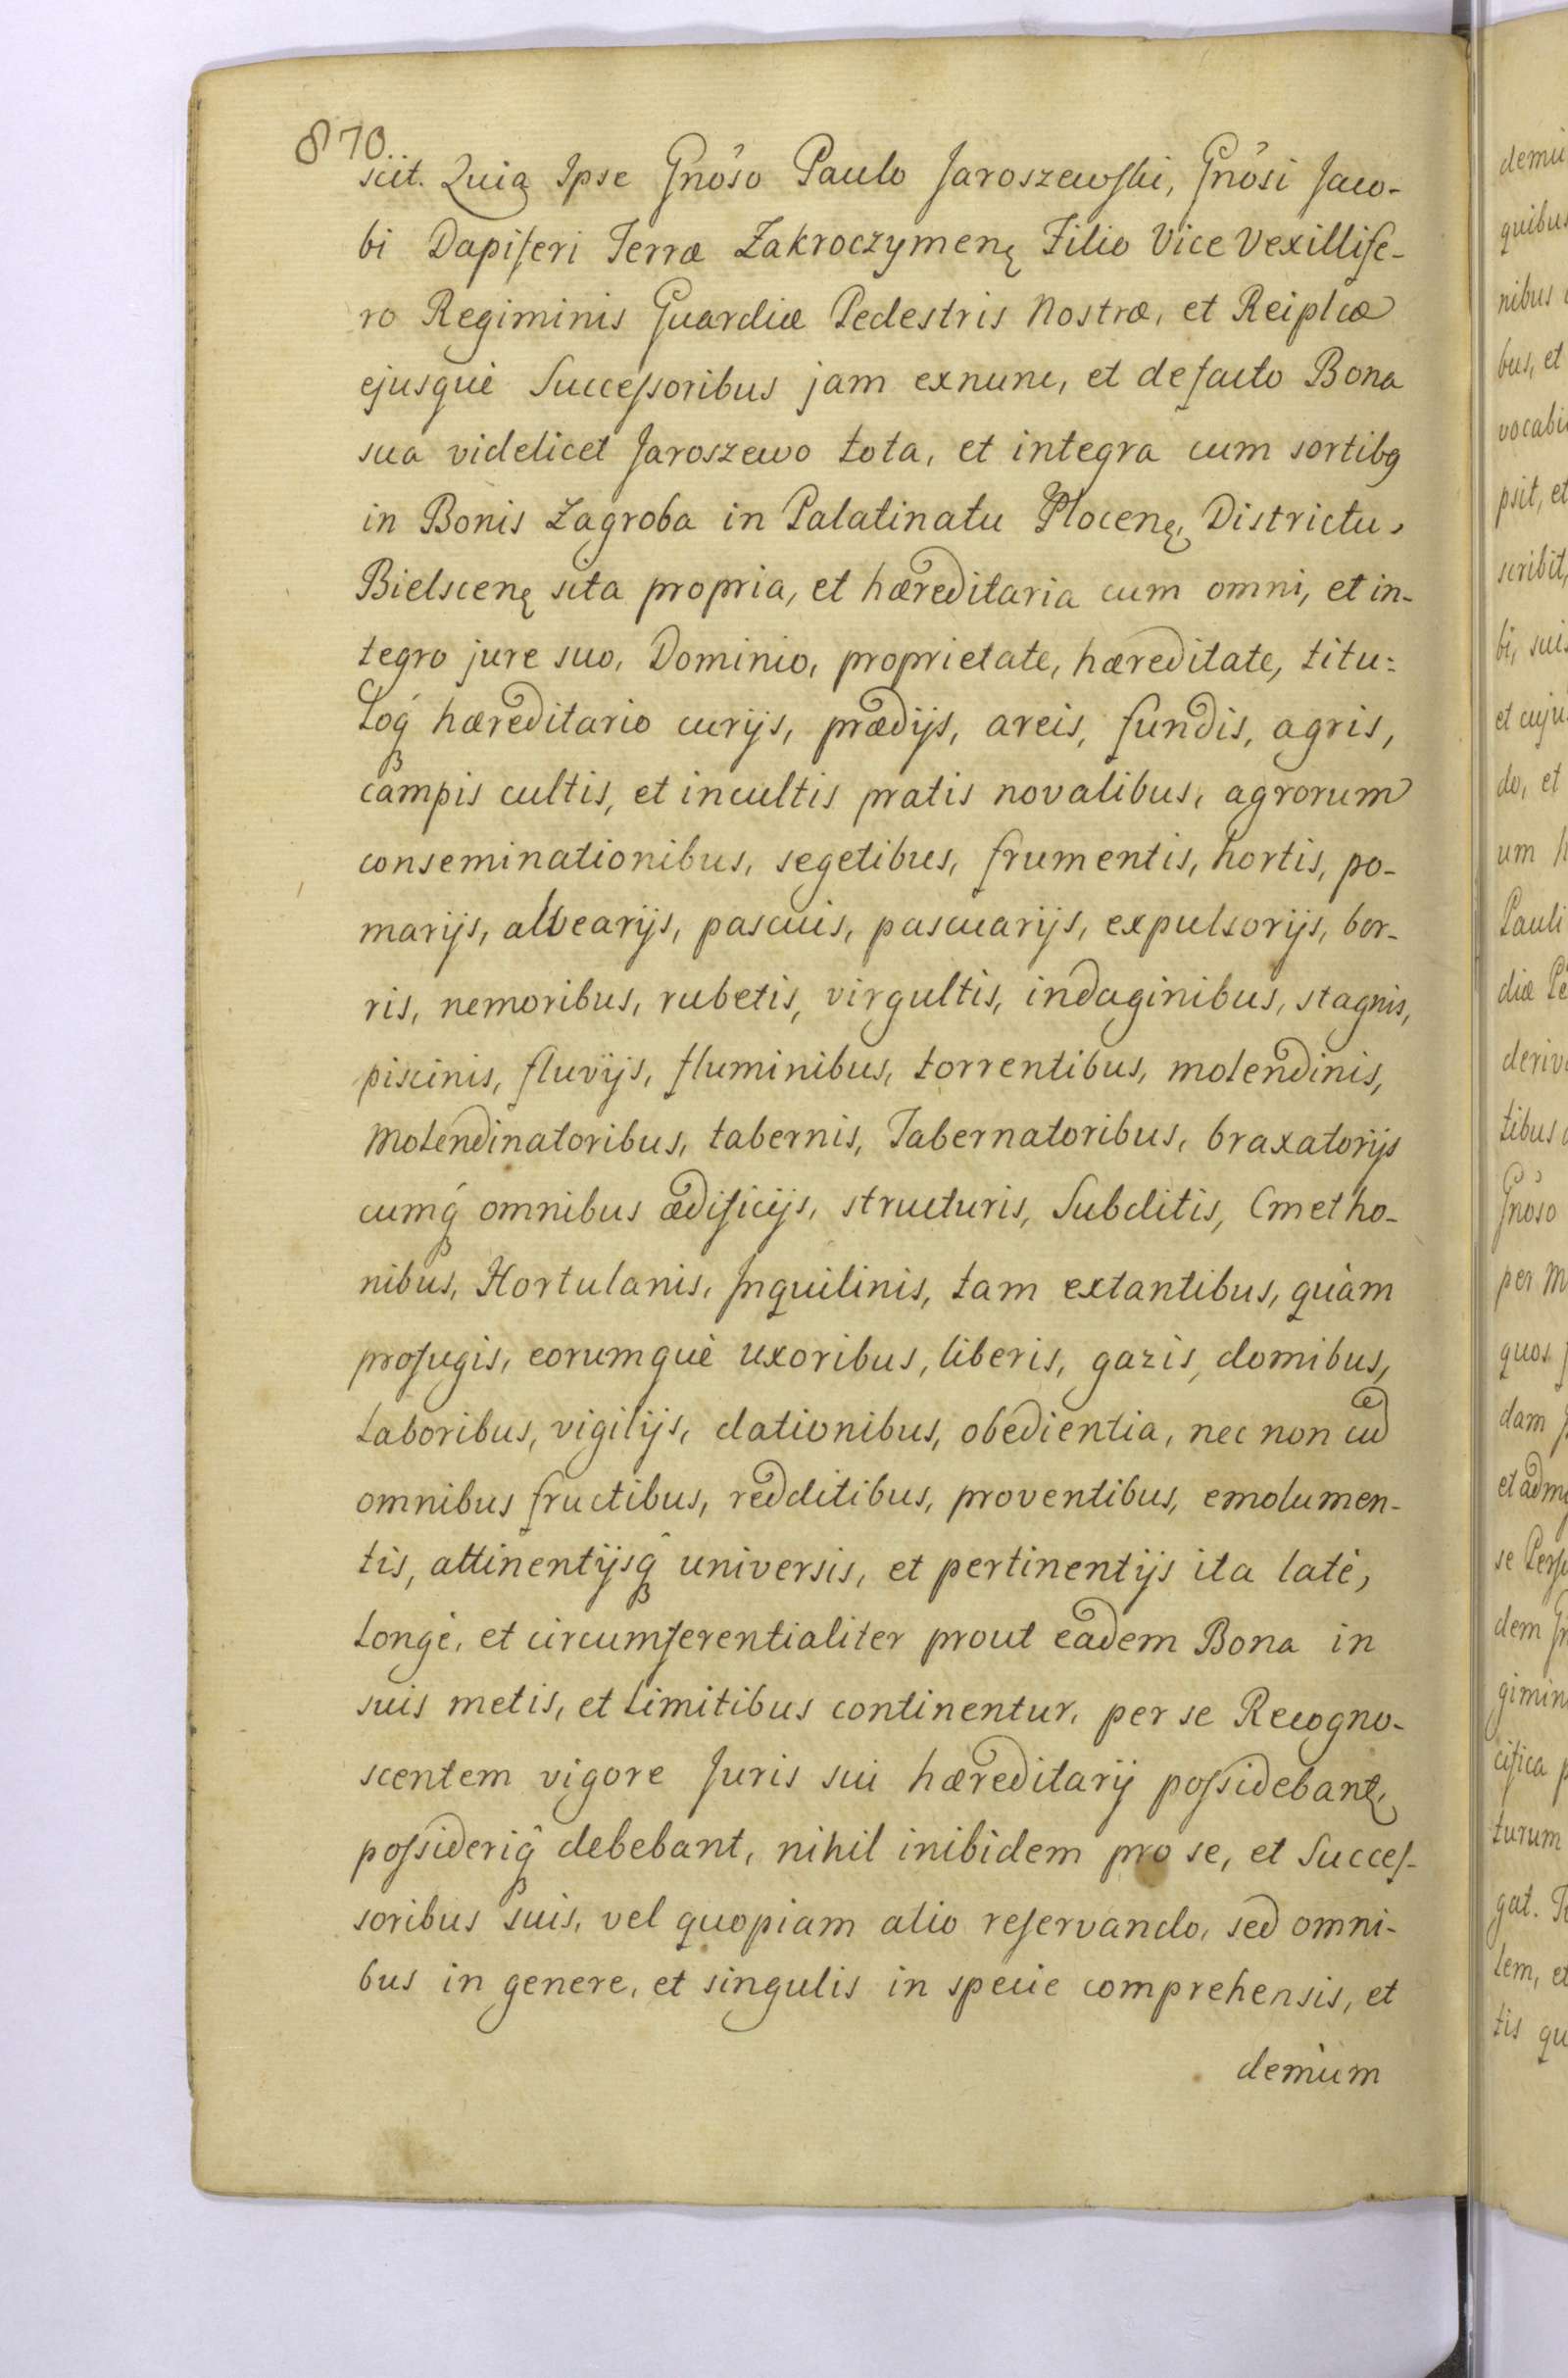 870.
scit. Quia Ipse Gnôso Paulo Jaroszewski, Gnôsi Jaco-
bi Dapiferi Terræ Zakroczymenę Filio Vice Vexillife-
ro Regiminis Guardiæ Pedestris Nostræ, et Reiplicæ
ejusquè Successoribus jam exnunc, et defacto Bona
sua videlicet Jaroszewo tota, et integra cum sortibq
in Bonis Zagroba in Palatinatu Plocenę, Districtu,
Bielscenę sita propria, et hæreditaria cum omni, et in-
tegro jure suo, Dominio, proprietate, hæreditate, titu:
loq́ hæreditario curijs, prædijs, areis, fundis, agris,
campis cultis, et incultis pratis novalibus, agrorum
conseminationibus, segetibus, frumentis, hortis, po-
marijs, alvearijs, pascuis, pascuarijs, expulsorijs, bor-
ris, nemoribus, rubetis, virgultis, indaginibus, stagnis,
piscinis, fluvijs, fluminibus, torrentibus, molendinis,
Molendinatoribus, tabernis, Tabernatoribus, braxatorijs
cumq́ omnibus ædificijs, structuris, Subditis, Cmetho-
nibus, Hortulanis, Inquilinis, tam extantibus, quàm
profugis, eorumquè uxoribus, liberis, gazis, domibus,
laboribus, vigilijs, dationibus, obedientia, nec non cu
omnibus fructibus, redditibus, proventibus, emolumen-
tis, attinentijsq̂ universis, et pertinentijs ita latè,
longè, et circumferentialiter prout eadem Bona in
suis metis, et limitibus continentur, per se Recogno-
scentem vigore Juris sui hæreditarij possidebantę,
possideriq̂ debebant, nihil inibidem pro se, et Succes-
soribus suis, vel quopiam alio reservando, sed omni-
bus in genere, et singulis in specie comprehensis, et
demùm